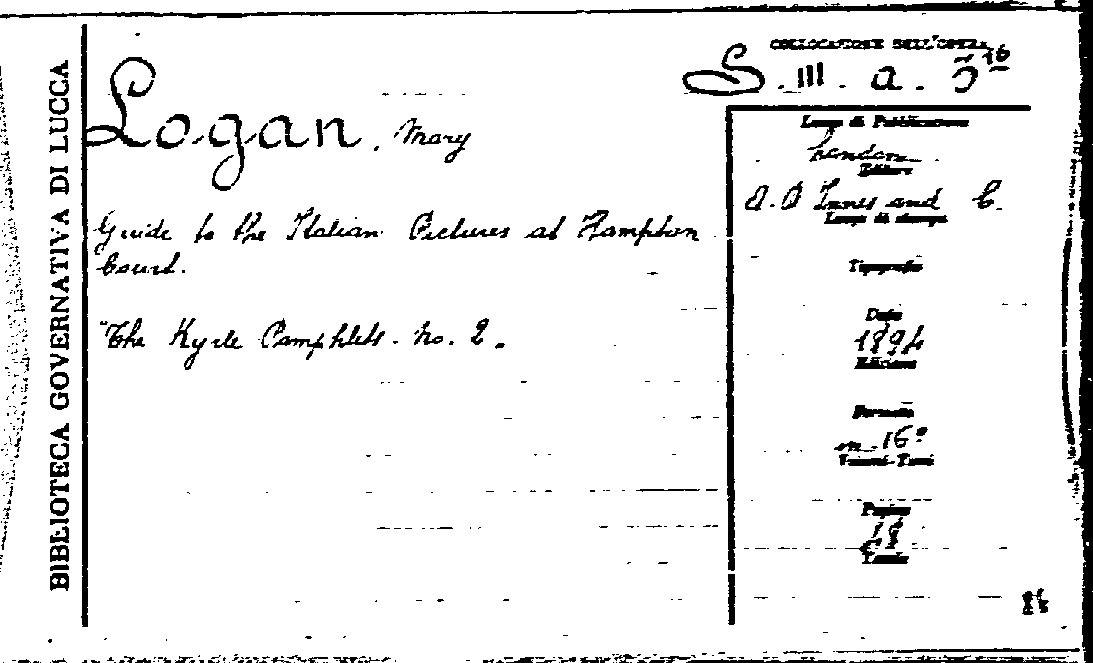 BIBLIOTECA GOVERNATIVA DI LUCCA
COLLOCAZIONE DELL'OPERA
S. III. a. 5 16
Logan, Mary
Guide to the Italian Pictures at Hampton
Court.
The Kyrle Pamphlets. No. 2.
Luogo di Pubblicazione
London
Editore
A. D Innes and C.
Luogo di stampa
Tipografia
Data
1894
Edizione
Formato
in 16°
Volumi-Tomi
Pagine
Tavole